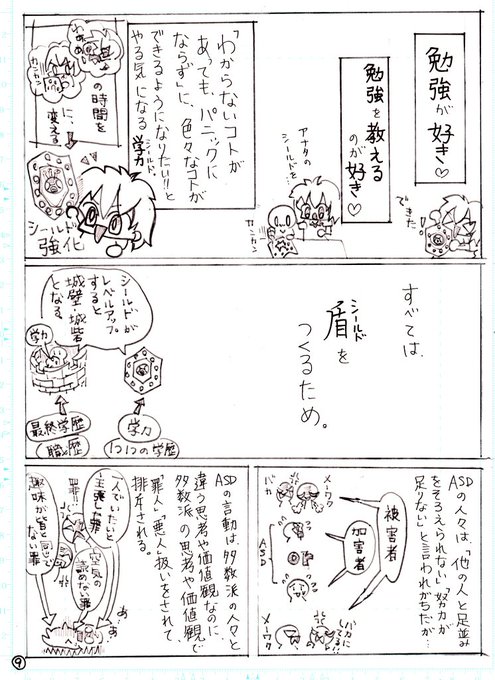 勉強が好き♡
勉強を教える
のが好き♡
できた!
アナタの
シールドを…
カニカン
「わからないコトが
あっても、パニックに
ならず」に、色々なコトが
できるようになりたい!!と
やる気になる
学力
シールド
わぁぁ
カンカン
の時間を
に、
変える
シールド
強化
すべては、
盾を
シールド
つくるため。
シールドが
レベルアップ
すると
城壁・城砦
となる。
学力
最終学歴
職歴
学力
1つ1つの学歴
ASDの人々は、「他の人と足並み
をそろえられない」「努力が
足りない」と言われがちだが…
被害者
加害者
メーワク
バカ
ASD
バカに
してる!!
メーワク
ASDの言動は、多数派の人々と
違う思考や価値観なのに、
多数派の思考や価値観で
「罪人」「悪人」扱いをされて、
排斥される。
一人でいたいと
主張した罪
罪!!
空気の
読めない罪
趣味が皆と同じで
ない罪
9